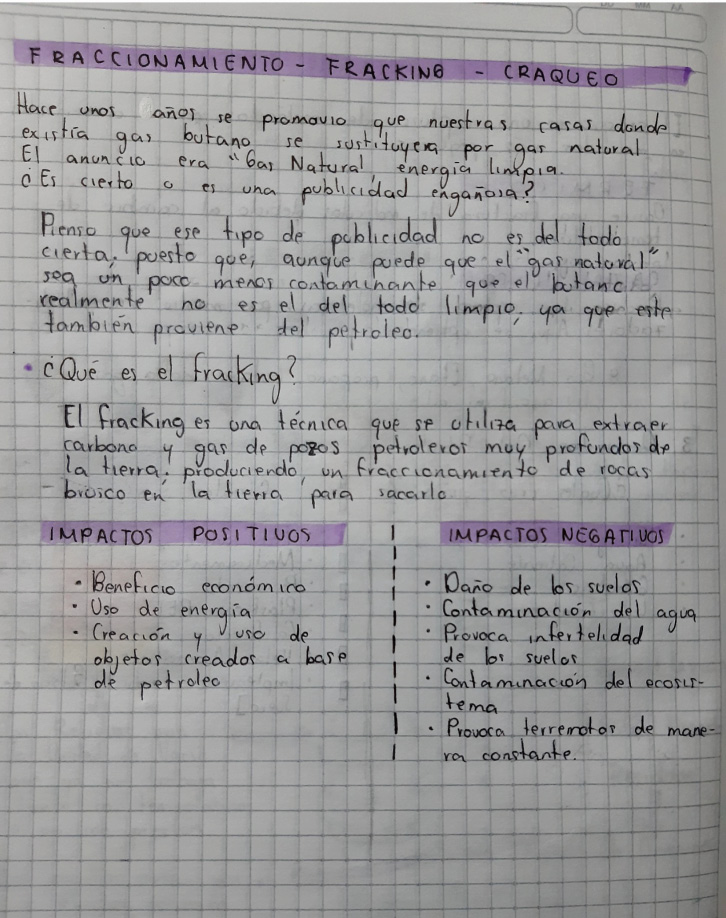 FRACCIONAMIENTO - FRACKING - CRAQUEO
Hace unos años se promovio que nuestras casas donde
existía gas butano se sustituyera por gas natural
El anuncio era "Gas Natural, energía limpia.
¿Es cierto o es una publicidad engañosa?
Pienso que ese tipo de publicidad no es del todo
cierta, puesto que, aunque puede que el "gas natural"
sea un poco menos contaminante que el butano
realmente no es el del todo limpio, ya que este
también proviene del petroleo.
• ¿Qué es el fracking?
El fracking es una técnica que se utiliza para extraer
carbono y gas de pozos petroleros muy profundos de
la tierra, produciendo, un fraccionamiento de rocas
- brusco en la tierra para sacarlo
IMPACTOS POSITIVOS
• Beneficio económico
• Uso de energía
• Creación y uso de
objetos creados a base
de petroleo
IMPACTOS NEGATIVOS
• Daño de los suelos
• Contaminación del agua
• Provoca infertelidad
de los suelos
• Contaminación del ecosis-
tema
• Provoca terremotos de mane-
ra constante.